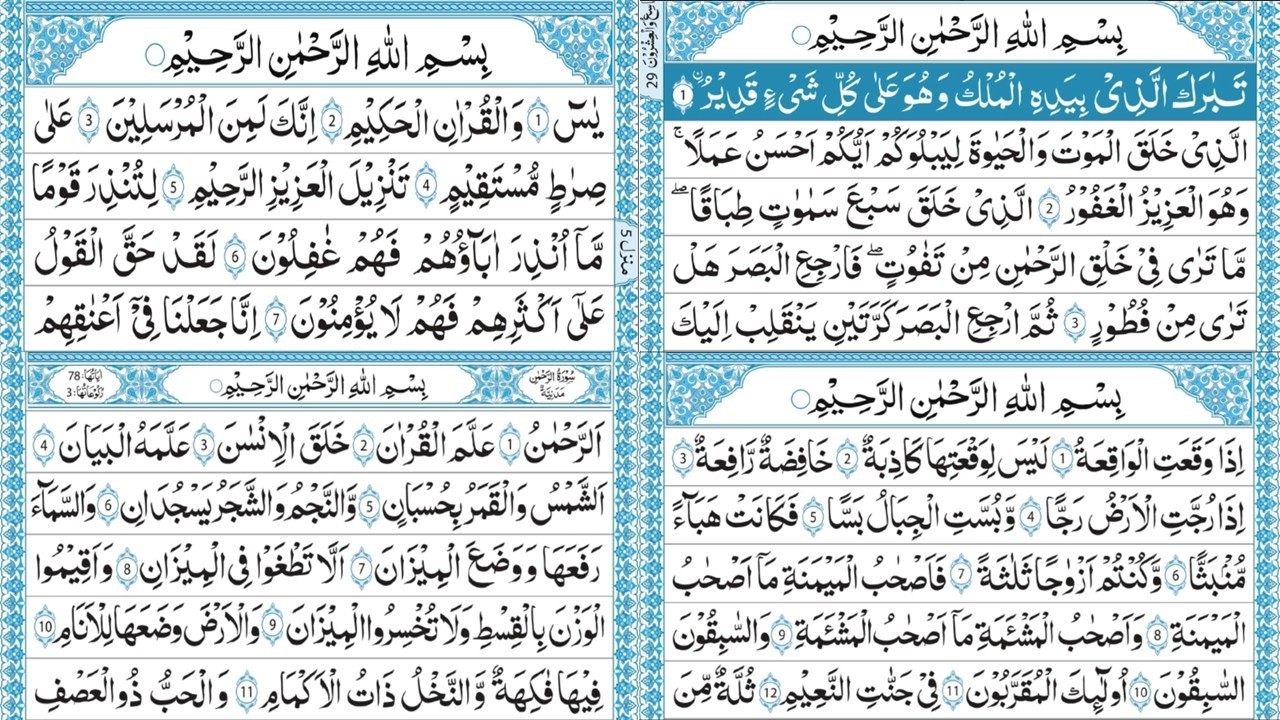 بِسْمِ اللهِ الرَّحْمٰنِ الرَّحِيْمِ
يٰسٓ 1 وَالْقُرْاٰنِ الْحَكِيْمِ 2 اِنَّكَ لَمِنَ الْمُرْسَلِيْنَ 3 عَلٰى
صِرٰطٍ مُّسْتَقِيْمٍ 4 تَنْزِيْلَ الْعَزِيْزِ الرَّحِيْمِ 5 لِتُنْذِرَ قَوْمًا
مَّآ اُنْذِرَ اٰبَآؤُهُمْ فَهُمْ غٰفِلُوْنَ 6 لَقَدْ حَقَّ الْقَوْلُ
عَلٰٓى اَكْثَرِهِمْ فَهُمْ لَا يُؤْمِنُوْنَ 7 اِنَّا جَعَلْنَا فِيْٓ اَعْنٰقِهِمْ
منزل 5
29
بِسْمِ اللهِ الرَّحْمٰنِ الرَّحِيْمِ
تَبٰرَكَ الَّذِيْ بِيَدِهِ الْمُلْكُ وَهُوَ عَلٰى كُلِّ شَيْءٍ قَدِيْرُ ۙ 1
الَّذِيْ خَلَقَ الْمَوْتَ وَالْحَيٰوةَ لِيَبْلُوَكُمْ اَيُّكُمْ اَحْسَنُ عَمَلًا ۚ
وَهُوَ الْعَزِيْزُ الْغَفُوْرُ 2 الَّذِيْ خَلَقَ سَبْعَ سَمٰوٰتٍ طِبَاقًا ۖ
مَّا تَرٰى فِيْ خَلْقِ الرَّحْمٰنِ مِنْ تَفٰوُتٍ ۖ فَارْجِعِ الْبَصَرَ هَلْ
تَرٰى مِنْ فُطُوْرٍ 3 ثُمَّ ارْجِعِ الْبَصَرَ كَرَّتَيْنِ يَنْقَلِبْ اِلَيْكَ
سُوْرَةُ الرَّحْمٰنِ مَدَنِيَّةٌ
بِسْمِ اللهِ الرَّحْمٰنِ الرَّحِيْمِ
اٰيَاتُهَا: 78
رُكُوْعَاتُهَا: 3
اَلرَّحْمٰنُ 1 عَلَّمَ الْقُرْاٰنَ 2 خَلَقَ الْاِنْسٰنَ 3 عَلَّمَهُ الْبَيَانَ 4
اَلشَّمْسُ وَالْقَمَرُ بِحُسْبَانٍ 5 وَّالنَّجْمُ وَالشَّجَرُ يَسْجُدَانِ 6 وَالسَّمَآءَ
رَفَعَهَا وَوَضَعَ الْمِيْزَانَ 7 اَلَّا تَطْغَوْا فِى الْمِيْزَانِ 8 وَاَقِيْمُوا
الْوَزْنَ بِالْقِسْطِ وَلَا تُخْسِرُوا الْمِيْزَانَ 9 وَالْاَرْضَ وَضَعَهَا لِلْاَنَامِ 10
فِيْهَا فَاكِهَةٌ وَّالنَّخْلُ ذَاتُ الْاَكْمَامِ 11 وَالْحَبُّ ذُو الْعَصْفِ
بِسْمِ اللهِ الرَّحْمٰنِ الرَّحِيْمِ
اِذَا وَقَعَتِ الْوَاقِعَةُ 1 لَيْسَ لِوَقْعَتِهَا كَاذِبَةٌ 2 خَافِضَةٌ رَّافِعَةٌ 3
اِذَا رُجَّتِ الْاَرْضُ رَجًّا 4 وَّبُسَّتِ الْجِبَالُ بَسًّا 5 فَكَانَتْ هَبَآءً
مُّنْبَثًّا 6 وَّكُنْتُمْ اَزْوٰجًا ثَلٰثَةً 7 فَاَصْحٰبُ الْمَيْمَنَةِ مَآ اَصْحٰبُ
الْمَيْمَنَةِ 8 وَاَصْحٰبُ الْمَشْئَمَةِ مَآ اَصْحٰبُ الْمَشْئَمَةِ 9 وَالسّٰبِقُوْنَ
السّٰبِقُوْنَ 10 اُولٰٓئِكَ الْمُقَرَّبُوْنَ 11 فِيْ جَنّٰتِ النَّعِيْمِ 12 ثُلَّةٌ مِّنَ